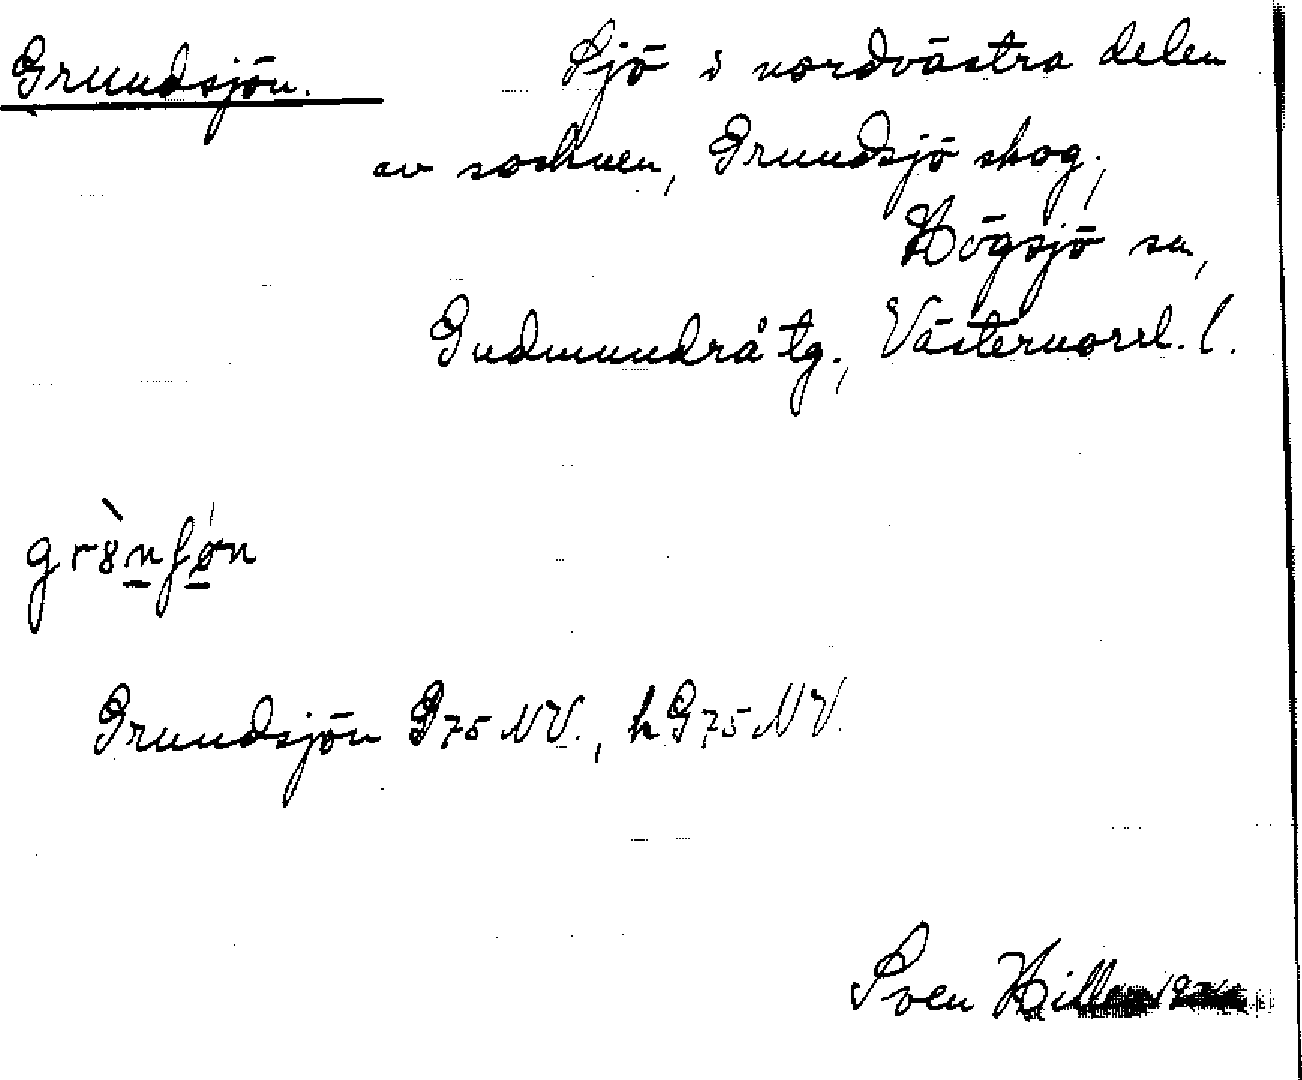 Grundsjön. Sjö i nordvästra delen
av socknen, Grundsjö skog,
Högsjö sn,
Gudmundrå tg., Västernorrl. l.
Grundsjön G75 NV., h G75 NV.
Sven Hillen